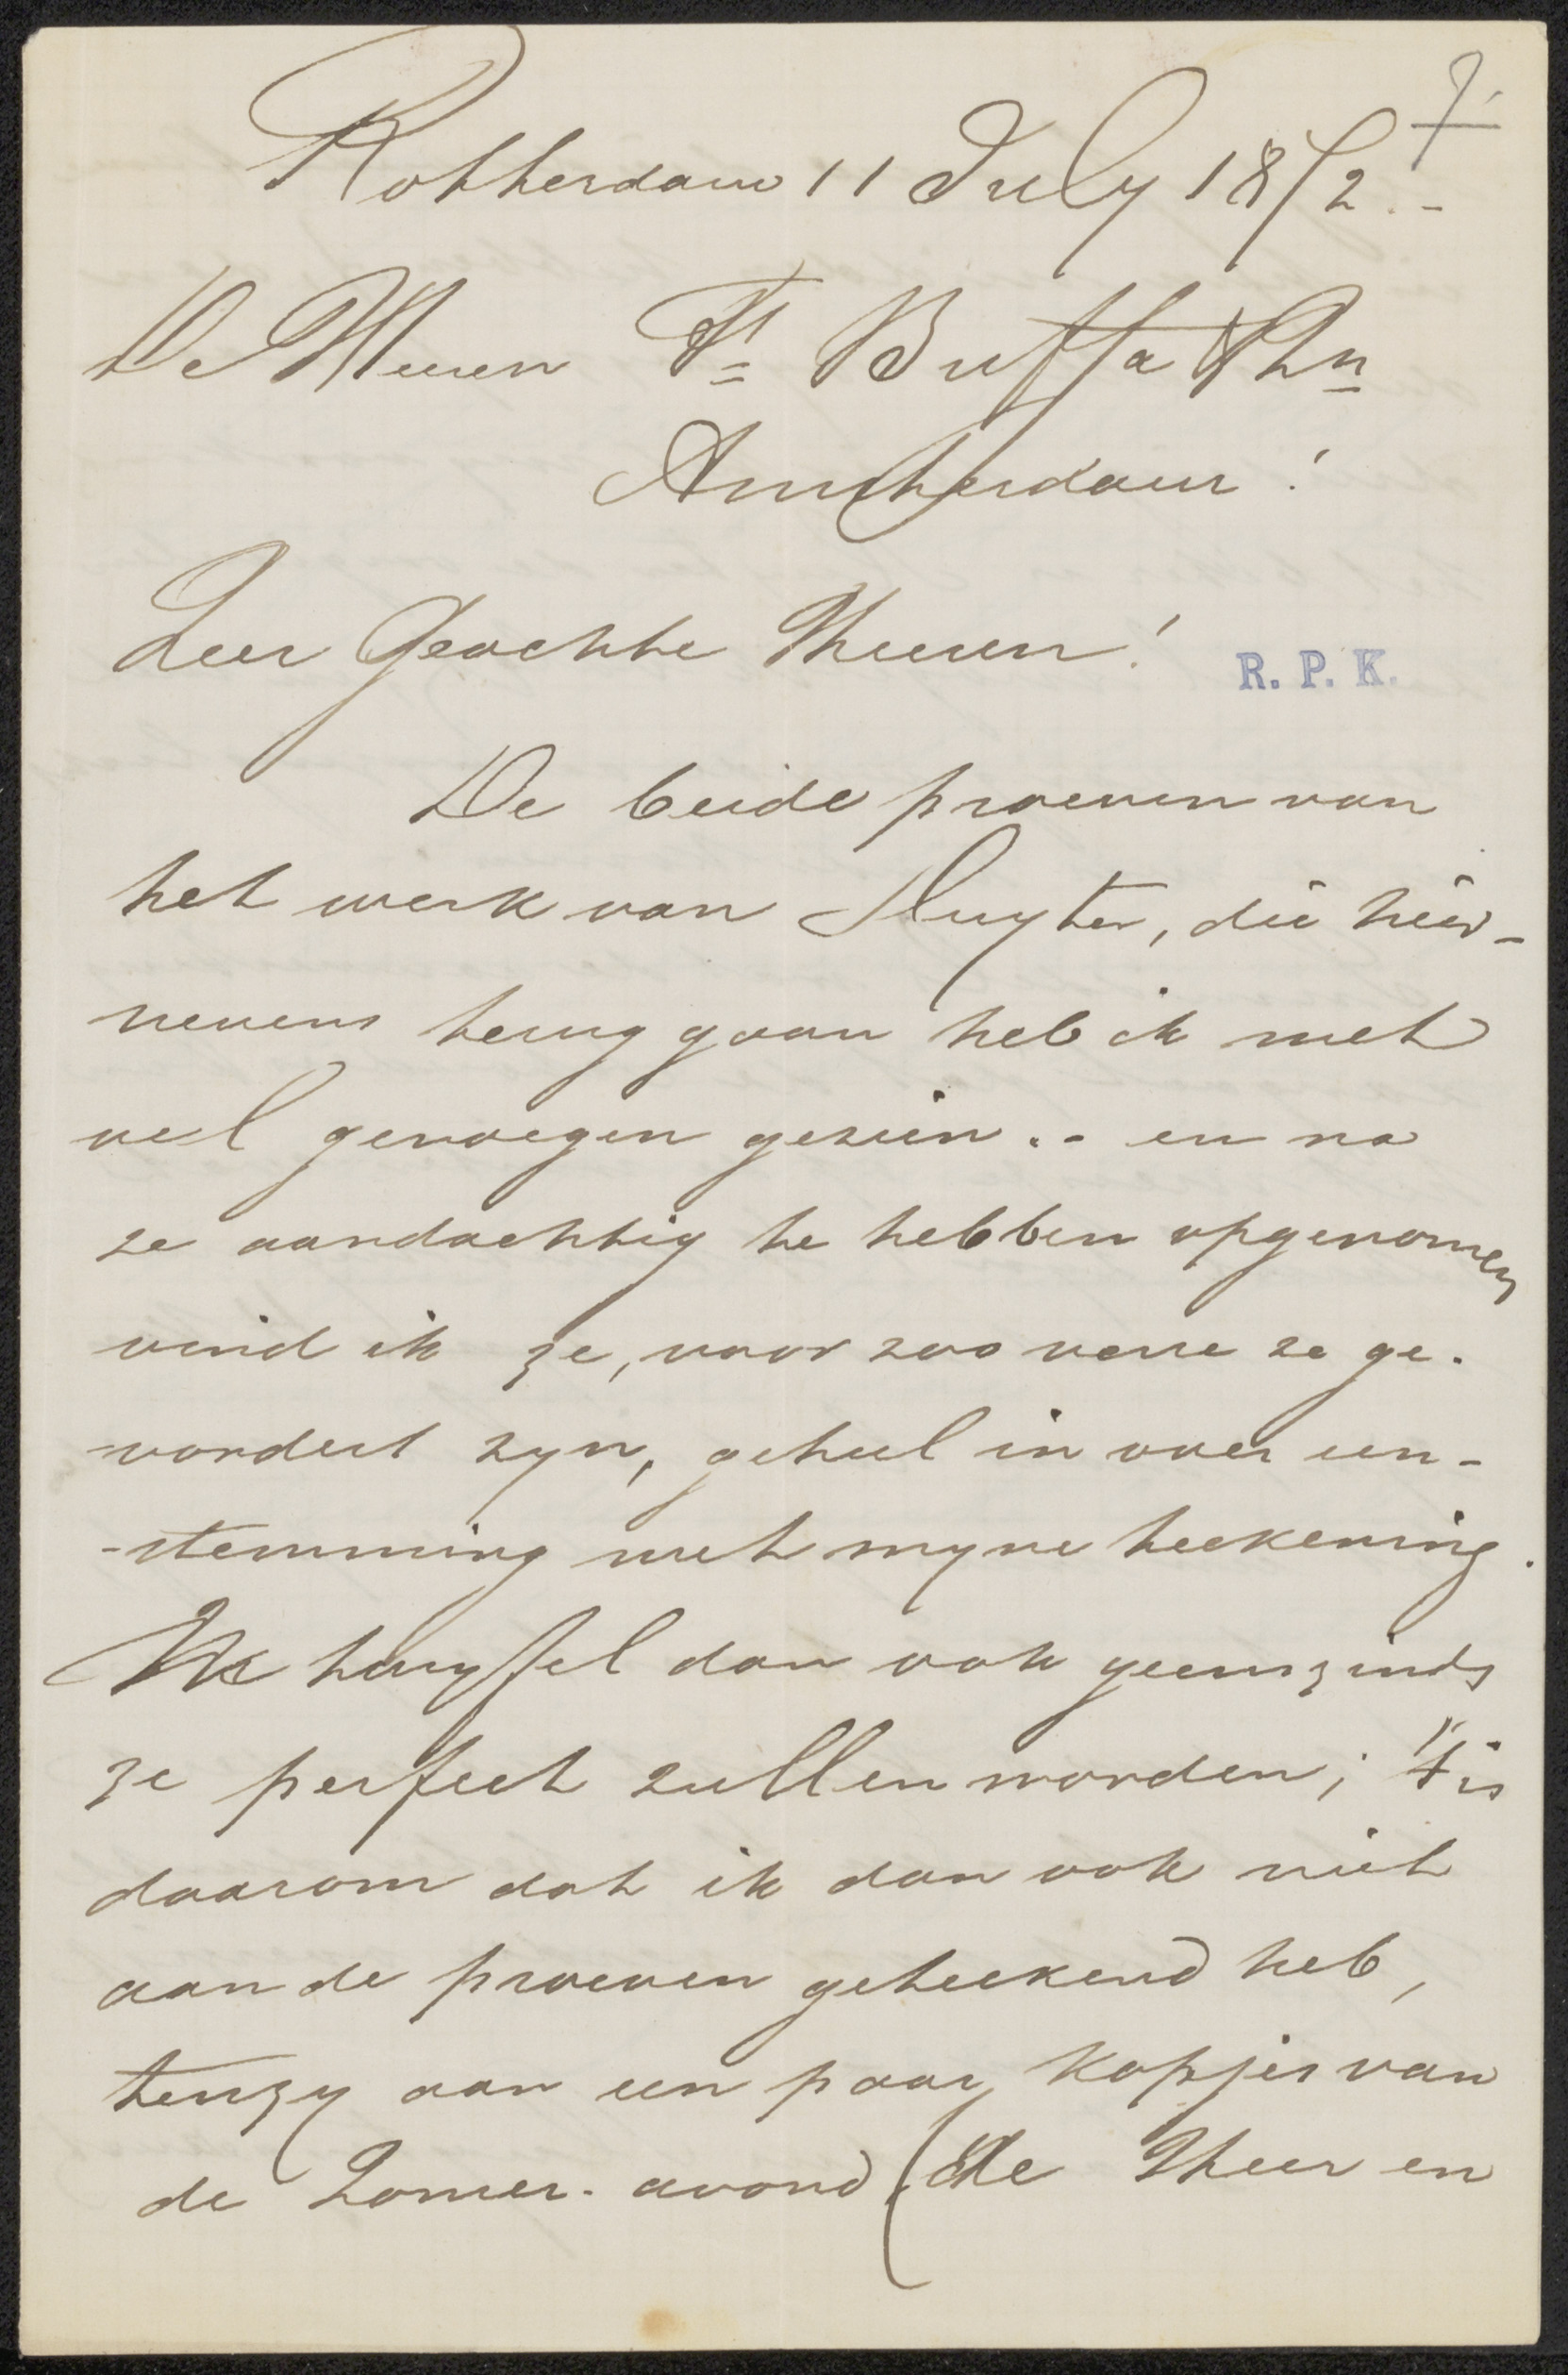 Rotterdam 11 July 1872.-
De Heeren Fs Buffa & Zn
Amsterdam!
Zeer Geachte Heeren!
R. P. K.
De beide proeven van
het werk van Sluyter, die hier-
nevens terug gaan heb ik met
veel genoegen gezien.- en na
ze aandachtig te hebben opgenomen
vind ik ze, voor zoo verre ze ge-
vorderd zyn, geheel in over een-
-stemming met myne teekening.
Ik twyffel dan ook geenszinds
ze perfect zullen worden; 't is
daarom dat ik dan ook niet
aan de proeven geteekend heb,
tenzy aan een paar kopjes van
de Zomer-avond (de Heer en